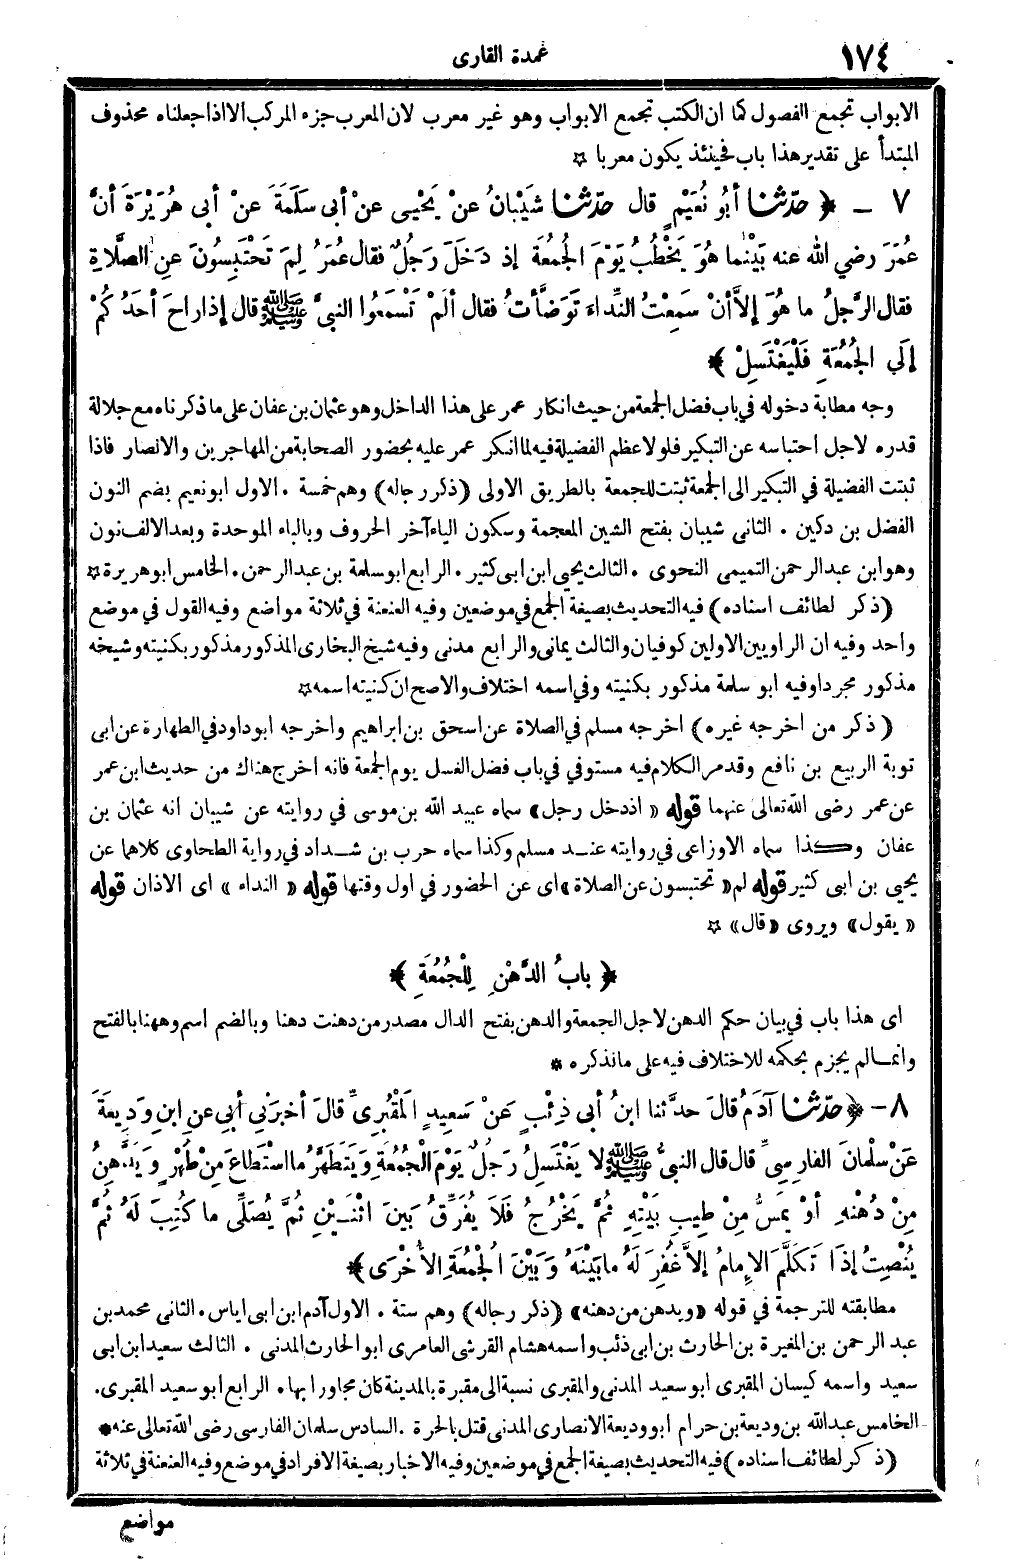 ١٧٤
عمدة القارى
الابواب تجمع الفصول كما ان الكتب تجمع الابواب وهو غير معرب لان المعرب جزء المركب الا اذا جعلناه محذوف
المبتدأ على تقدير هذا باب فحينئذ يكون معربا ☆
٧ ـ ﴿ حدّثنا أبُو نُعَيْمٍ قال حدّثنا شَيْبَانُ عنْ يَحْيى عنْ أبى سَلَمَةَ عنْ أبى هُرَيْرَةَ أنَّ
عُمَرَ رضي الله عنه بَيْنَما هُوَ يَخْطُبُ يَوْمَ الجُمُعَةِ إذ دَخَلَ رَجُلٌ فقال عُمَرُ لِمَ تَحْتَبِسُونَ عنِ الصَّلاَةِ
فقال الرَّجلُ ما هُوَ إلاَّ أنْ سَمِعْتُ النِّداءَ تَوَضَّأتُ فقال ألَمْ تَسْمَعُوا النبىَّ ﷺ قال إذا راحَ أحَدُ كُمْ
إلَى الجُمُعَةِ فَلْيَغْتَسِلْ ﴾
وجه مطابة دخوله في باب فضل الجمعة من حيث انكار عمر على هذا الداخل وهو عثمان بن عفان على ما ذكرناه مع جلالة
قدره لاجل احتباسه عن التبكير فلولا عظم الفضيلة فيه لما انكر عمر عليه بحضور الصحابة من المهاجرين والانصار فاذا
ثبتت الفضيلة في التبكير الى الجمعة ثبتت للجمعة بالطريق الاولى (ذكر رجاله) وهم خمسة . الاول ابو نعيم بضم النون
الفضل بن دكين . الثانى شيبان بفتح الشين المعجمة وسكون الياء آخر الحروف وبالباء الموحدة وبعد الالف نون
وهو ابن عبد الرحمن التميمى النحوى . الثالث يحيى ابن ابى كثير . الرابع ابو سلمة بن عبد الرحمن . الخامس ابو هريرة ☆
(ذكر لطائف اسناده) فيه التحديث بصيغة الجمع في موضعين وفيه العنعنة في ثلاثة مواضع وفيه القول في موضع
واحد وفيه ان الراويين الاولين كوفيان والثالث يمانى والرابع مدنى وفيه شيخ البخارى المذكور مذكور بكنيته وشيخه
مذكور مجردا وفيه ابو سلمة مذكور بكنيته وفي اسمه اختلاف والاصح ان كنيته اسمه ☆
(ذكر من اخرجه غيره) اخرجه مسلم في الصلاة عن اسحق بن ابراهيم واخرجه ابو داود في الطهارة عن ابى
توبة الربيع بن نافع وقد مر الكلام فيه مستوفي في باب فضل الغسل يوم الجمعة فانه اخرج هناك من حديث ابن عمر
عن عمر رضى الله تعالى عنهما قوله « اذ دخل رجل» سماه عبيد الله بن موسى في روايته عن شيبان انه عثمان بن
عفان وكذا سماه الاوزاعى في روايته عند مسلم وكذا سماه حرب بن شداد في رواية الطحاوى كلاهما عن
يحيى بن ابى كثير قوله لم « تحتبسون عن الصلاة » اى عن الحضور في اول وقتها قوله « النداء » اى الاذان قوله
« يقول» ويروى «قال» ☆
﴿ بابُ الدَّهْنِ لِلْجُمُعَةِ ﴾
اى هذا باب في بيان حكم الدهن لاجل الجمعة والدهن بفتح الدال مصدر من دهنت دهنا وبالضم اسم وههنا بالفتح
وانما لم يجزم بحكمه للاختلاف فيه على ما نذكره *
٨ - ﴿ حدّثنا آدَمُ قالَ حدَّثنا ابنُ أبي ذِئْبٍ عَنْ سَعِيدٍ المَقْبُرِىِّ قالَ أخبرَنِي أبِي عنِ ابنِ ودِيعَةَ
عَنْ سَلْمانَ الفارِسِىِّ قال قال النبىُّ ﷺ لا يَغْتَسِلُ رَجلٌ يَوْمَ الْجُمُعَةِ ويَتَطَهَّرُ ما اسْتَطاعَ مِنْ طُهْرٍ ويَدَّهِنُ
مِنْ دُهْنِهِ أوْ يَمَسُّ مِنْ طِيبِ بَيْتِهِ ثُمَّ يَخْرُجُ فَلَا يُفَرِّقُ بَينَ اثْنَيْنِ ثُمَّ يُصَلِّى ما كُتِبَ لَهُ ثُمَّ
يُنْصِتُ إذَا تَكَلَّمَ الإمامُ إلاَّ غُفِرَ لَهُ ما بَيْنَهُ وَبَيْنَ الْجُمُعَةِ الأُخْرَى ﴾
مطابقته للترجمة في قوله «ويدهن من دهنه» (ذكر رجاله) وهم ستة . الاول آدم ابن ابى اياس . الثانى محمد بن
عبد الرحمن بن المغيرة بن الحارث بن ابى ذئب واسمه هشام القرشى العامرى ابو الحارث المدنى . الثالث سعيد ابن ابى
سعيد واسمه كيسان المقبرى ابو سعيد المدنى والمقبرى نسبة الى مقبرة بالمدينة كان مجاورا بها . الرابع ابو سعيد المقبرى .
الخامس عبد الله بن وديعة بن حرام ابو وديعة الانصارى المدنى قتل بالحرة . السادس سلمان الفارسى رضى الله تعالى عنه *
(ذكر لطائف اسناده) فيه التحديث بصيغة الجمع في موضعين وفيه الاخبار بصيغة الافراد في موضع وفيه العنعنة في ثلاثة
مواضع